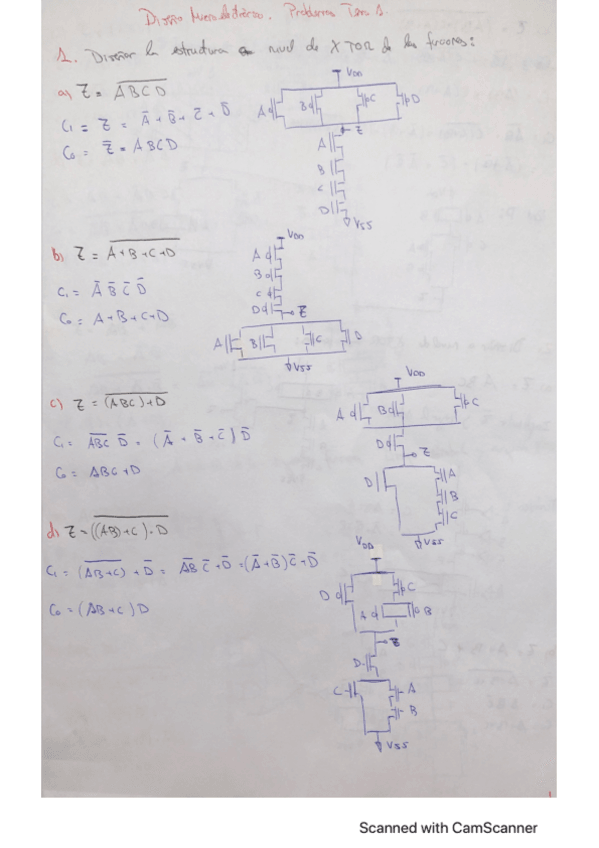 Diseño Microelectrónico. Problemas Tema 1.
1. Diseñar la estructura a nivel de XTOR de las funciones:
a) Z = \overline{ABCD}
C₁ = Z = Ā + B̄ + C̄ + D̄
C₀ = Z̄ = ABCD
VDD
A B C D
Z
A
B
C
D
VSS
b) Z = \overline{A+B+C+D}
C₁ = Ā B̄ C̄ D̄
C₀ = A+B+C+D
VDD
A
B
C
D Z
A B C D
VSS
c) Z = \overline{(ABC)+D}
C₁ = \overline{ABC} D̄ = (Ā + B̄ + C̄) D̄
C₀ = ABC+D
VDD
A B C
D Z
D A
B
C
VSS
d) Z = \overline{((AB)+C)·D}
C₁ = \overline{(AB+C)} + D̄ = \overline{AB} C̄ + D̄ = (Ā+B̄)C̄+D̄
C₀ = (AB+C)D
VDD
D C
A B
Z
D
C A
B
VSS
Scanned with CamScanner